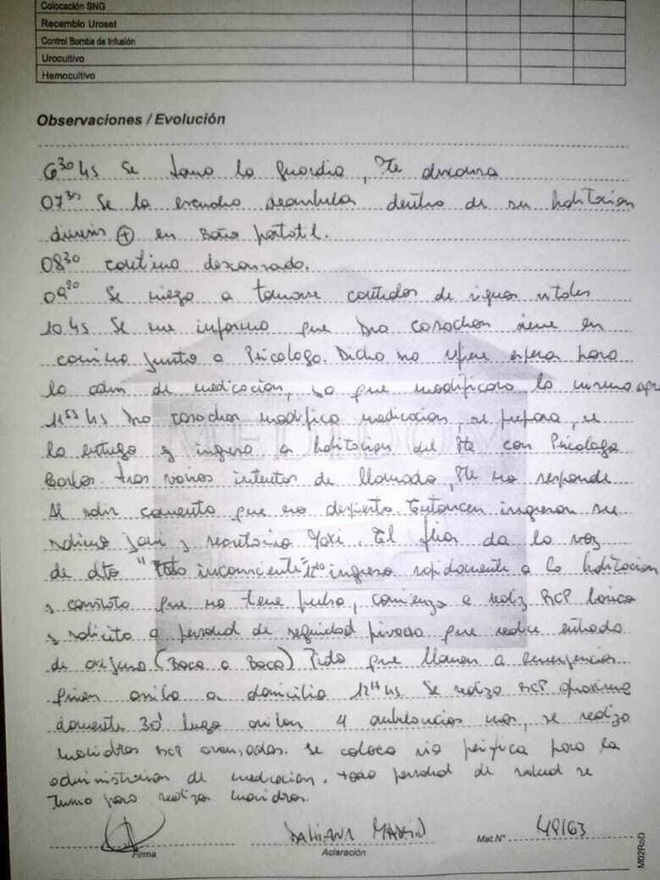 Colocación SNG
Recambio Uroset
Control Bomba de Infusión
Urocultivo
Hemocultivo
Observaciones / Evolución
6³⁰ hs Se toma la guardia, Pte descansa
07³⁰ Se lo escucha deambular dentro de su habitacion
diuresis ⊕ en baño portatil.
08³⁰ continua descansando.
09³⁰ Se niega a tomarse controles de signos vitales
10 hs Se me informa que Dra Cosachov viene en
camino junto a Psicologo. Dicha espera para
la adm de medicacion, ya que modificara la misma
hs Dra Cosachov modifica medicacion, se prepara, se
la entrega y ingresa a habitacion del Pte con Psicologo
tras varios intentos de llamado, Pte no responde
Al salir comenta que no despierta. Entonces ingresan su
sobrino y secretario Maxi. El da la voz
de alto ingreso rapidamente a la habitacion
y constato que no tiene pulso, comienzo a realiz RCP basica
y solicito a personal de seguridad privada que realice entrada
de oxigeno (Boca a Boca) Pido que llamen a emergencias
arriba a domicilio hs. Se realiza RCP aproxima
damente 30' luego arriban 4 ambulancias mas, se realiza
maniobras RCP avanzadas. Se coloca via periferica para la
administracion de medicacion. todo personal de salud se
turna para realizar maniobras.
Firma
Aclaración
Mat. Nº
M02RoD